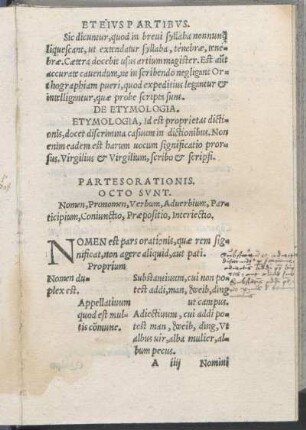 ET EIVS PARTIBVS.
Sic dicuntur, quod in breui syllaba nonnunq̃
liquescant, ut extendatur syllaba, tenebræ, tene-
bræ. Cætera docebit usus artium magister. Est aũt
accurate cauendum, ne in scribendo negligant Or-
thographiam pueri, quod expeditius legantur &
intelligantur, quæ probe scripta sunt.
DE ETYMOLOGIA.
ETYMOLOGIA, id est proprietas dicti-
onis, docet discrimina casuum in dictionibus. Non
enim eadem est harum uocum significatio pror-
sus. Virgilius & Virgilium, scribo & scripsi.
PARTES ORATIONIS.
OCTO SVNT.
Nomen, Pronomen, Verbum, Aduerbium, Par-
ticipium, Coniunctio, Præpositio, Interiectio.
NOMEN est pars orationis, quæ rem sig-
nificat, non agere aliquid, aut pati.
Proprium
Nomen du-
plex est.
Appellatiuum
quod est mul-
tis cõmune.
Substantiuum, cui non po-
test addi, man, weib, ding
ut campus.
Adiectiuum, cui addi po-
test man, weib, ding, Vt
albus uir, alba mulier, al-
bum pecus.
A iiij Nomini